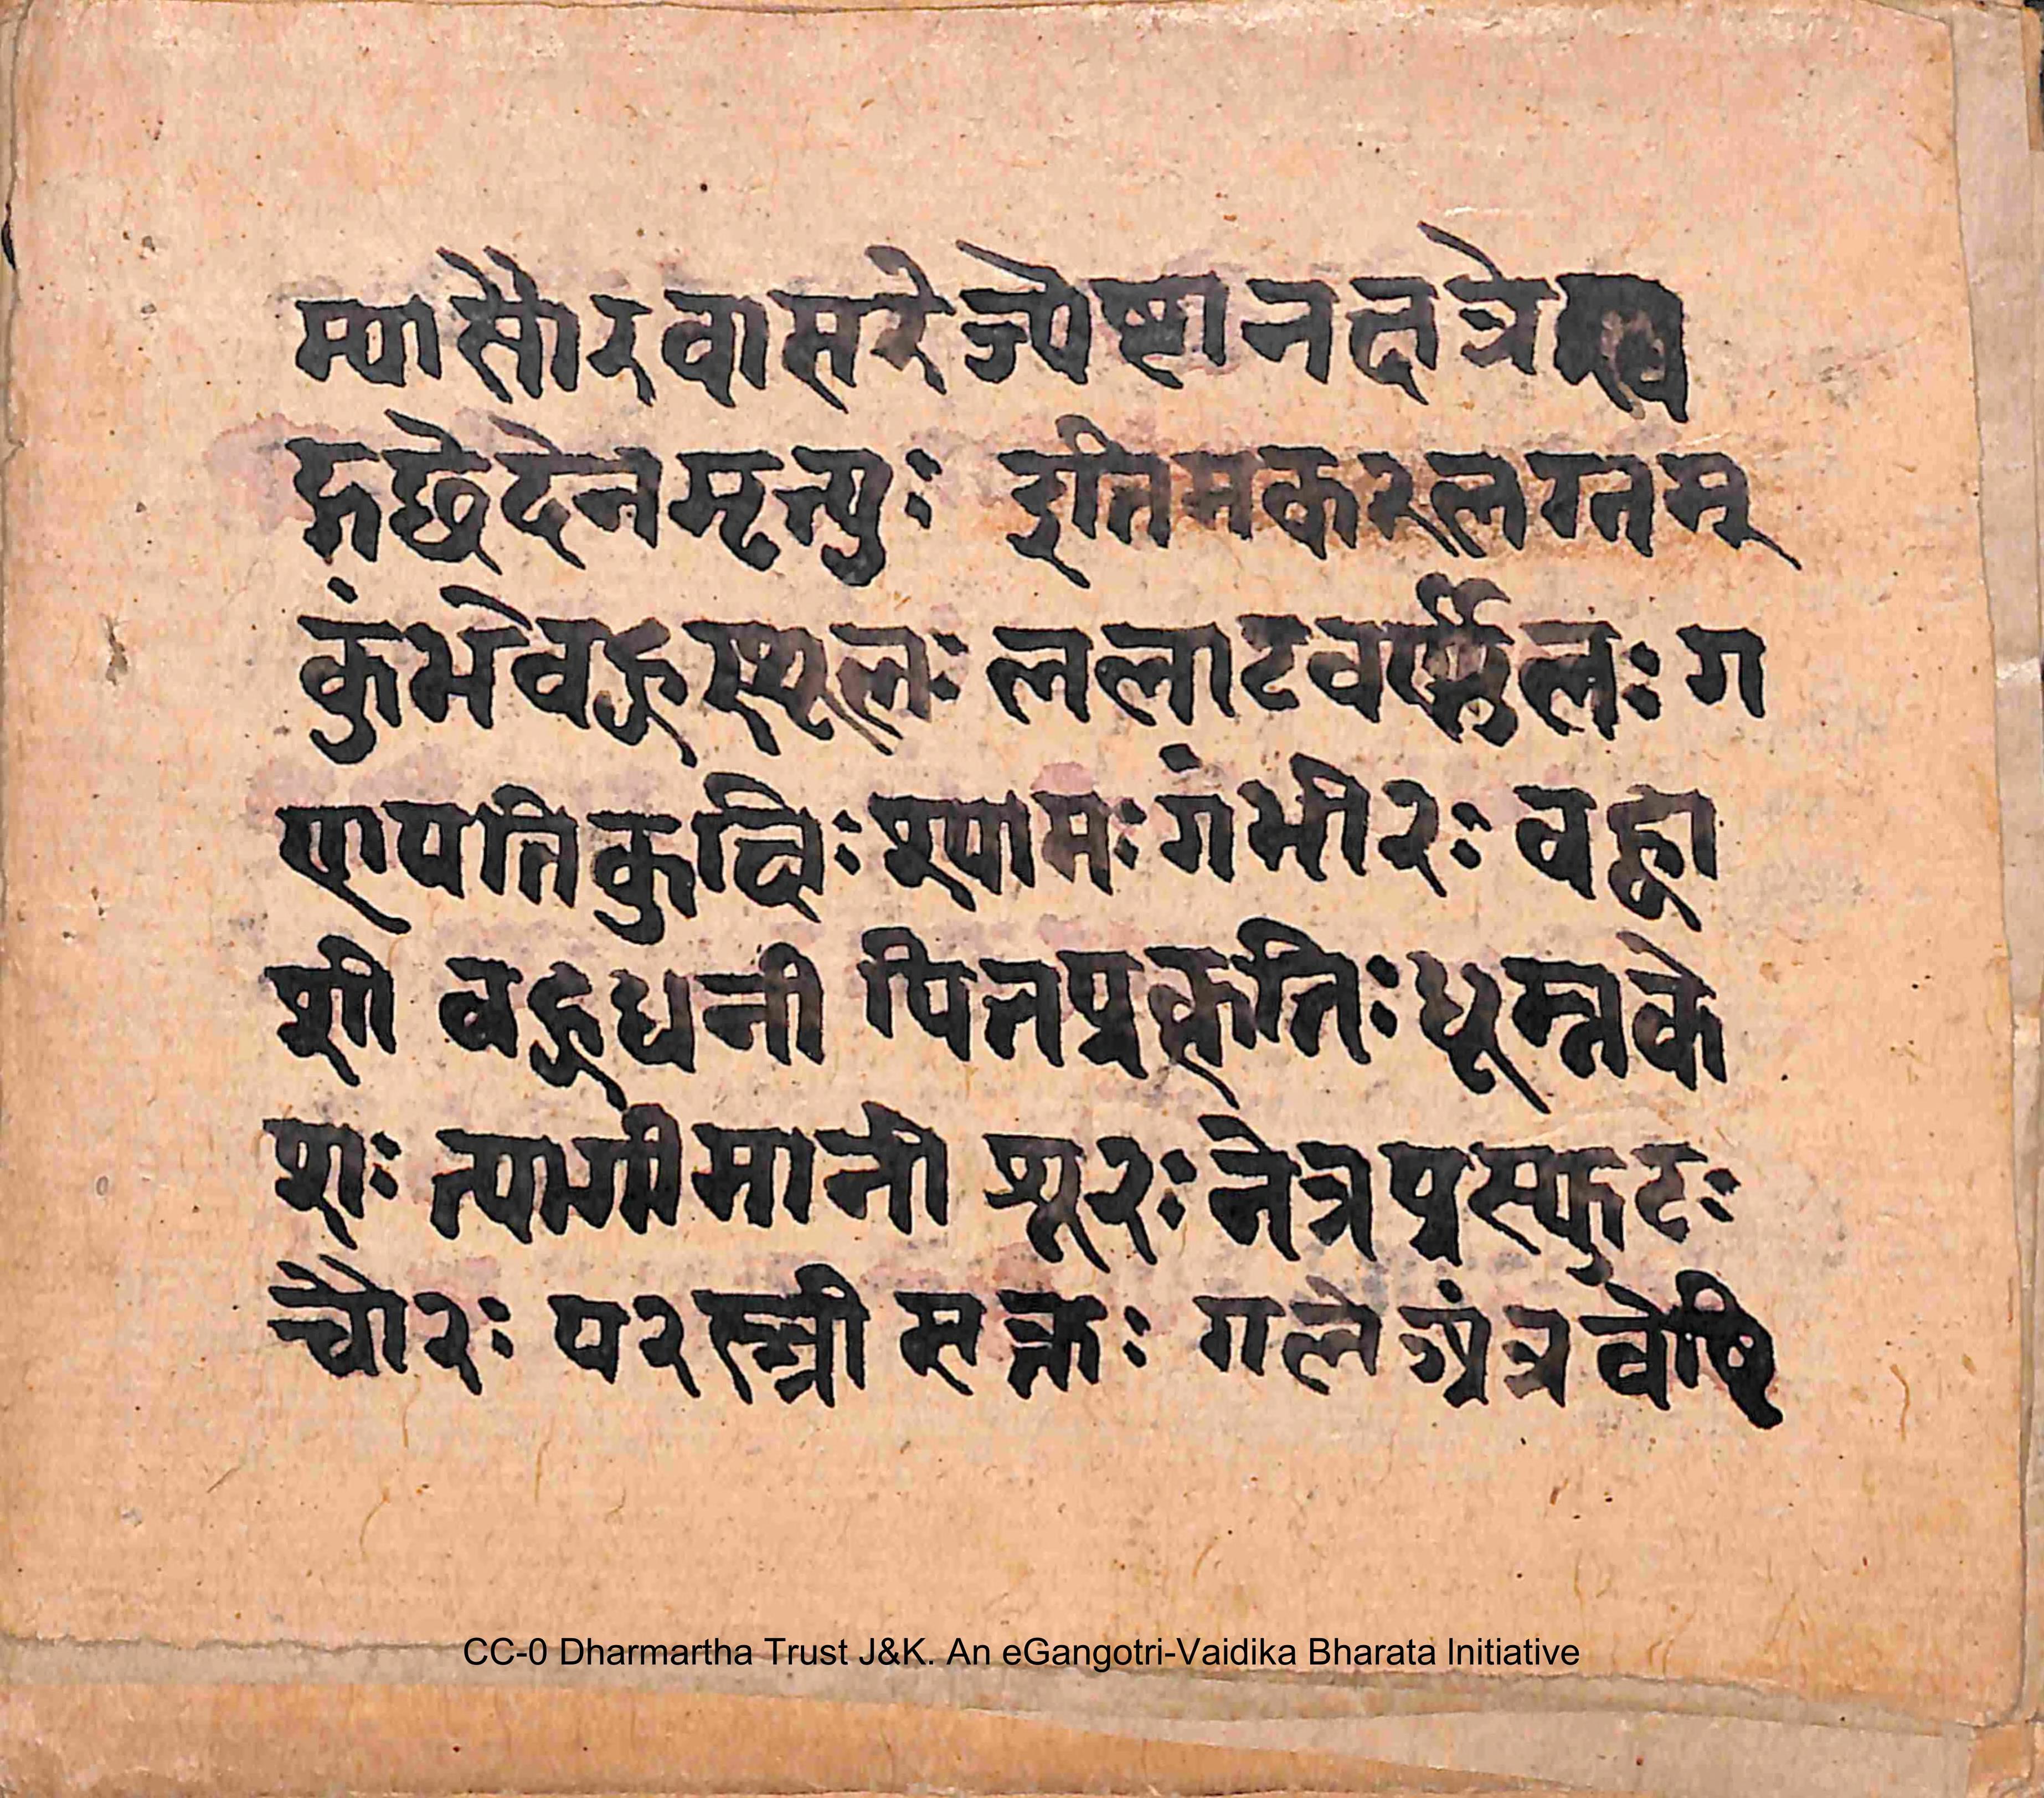 म्यासौरवासरे ज्येष्टानक्षत्रे ख
ङ्गछेदेनमृत्युः इतिमकरलग्नम्
कुंभेवङस्थूलः ललाटवर्त्तुलः ग
णपतिकुक्षिः श्यामः गंभीरः वह्वा
शी वङधनी पित्तप्रकृतिः धूम्रके
शः त्यागीमानी शूरः नेत्रप्रस्फुटः
चौरः परस्त्री सक्तः गले
CC-0 Dharmartha Trust J&K. An eGangotri-Vaidika Bharata Initiative